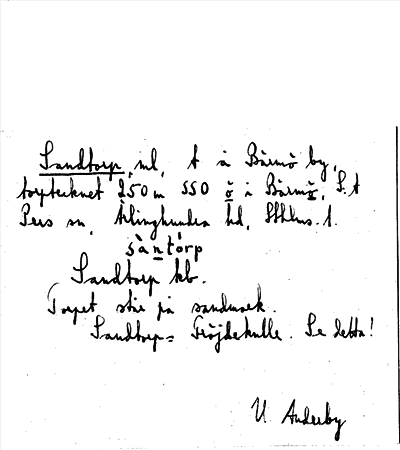 Sandtorp, ml, t å Bärmö by,
torptecknet 250 m SSO ö i Bärmö, S:t
Pers sn, Ärlinghundra hd, Sthlms l.
sàntórp
Sandtorp kb.
Torpet står på sandmark.
Sandtorp = Fröjdekulle. Se detta!
U. Anderby